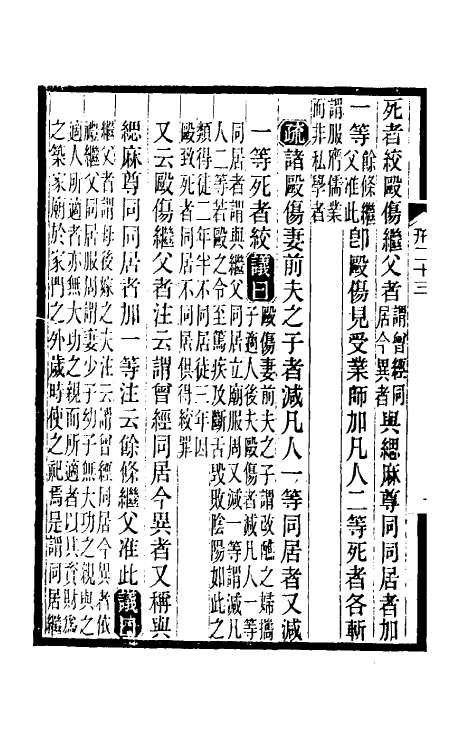 死者絞毆傷繼父者謂曾經同居今異者與緦麻尊同同居者加
一等餘條繼父准此卽毆傷見受業師加凡人二等死者各斬
謂服膺儒業
而非私學者
疏諸毆傷妻前夫之子者減凡人一等同居者又減
一等死者絞議曰毆傷妻前夫之子謂改醮之婦攜
子適人後夫毆傷者減凡人一等
同居者謂與繼父同居立廟服周又減一等謂減凡
人二等若毆之令至篤疾及斷舌毀敗陰陽如此之
類得徒二年半不同居徒三年因
毆致死者同居不同居俱得絞罪
又云毆傷繼父者注云謂曾經同居今異者又稱與
緦麻尊同同居者加一等注云餘條繼父准此議曰
繼父者謂母後嫁之夫注云謂曾經同居今異者依
禮繼父同居服周謂妻少子幼子無大功之親與之
適人所適者亦無大功之親而所適者以其資財爲
之築家廟於家門之外歲時使之祀焉是謂同居繼
刑二十三